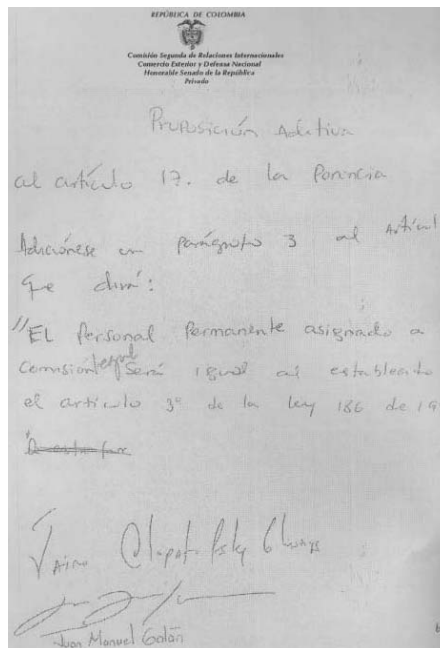 REPÚBLICA DE COLOMBIA
Comisión Segunda de Relaciones Internacionales
Comercio Exterior y Defensa Nacional
Honorable Senado de la República
Privado
Proposición Aditiva
al artículo 17. de la Ponencia
Adiciónese un parágrafo 3 al Artícul
que dirá:
"El Personal Permanente asignado a
Comisión legal será igual al establecido
el artículo 3º de la ley 186 de 19
Juan Manuel Galán